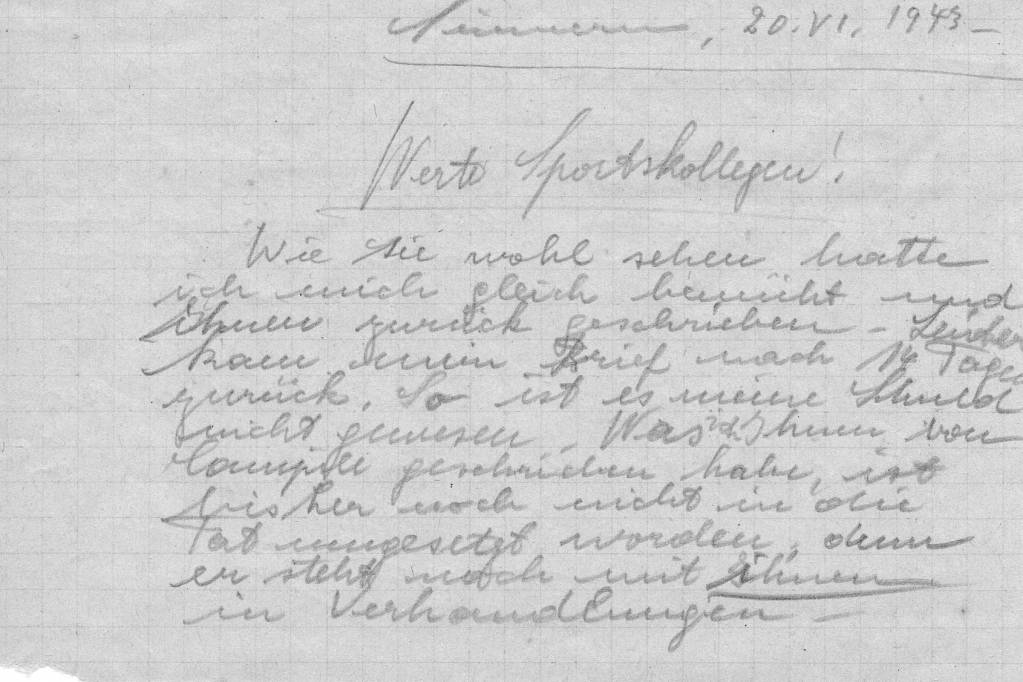 , 20. VI. 1943 –
Werte Sportskollegen!
Wie Sie wohl sehen hatte
ich mich gleich bemüht und
Ihnen zurück geschrieben – Leider
kam mein Brief nach 14 Tagen
zurück. So ist es meine Schuld
nicht gewesen. Was ich Ihnen von
geschrieben habe, ist
bisher noch nicht in die
Tat umgesetzt worden, denn
er steht noch mit ihnen
in Verhandlungen –